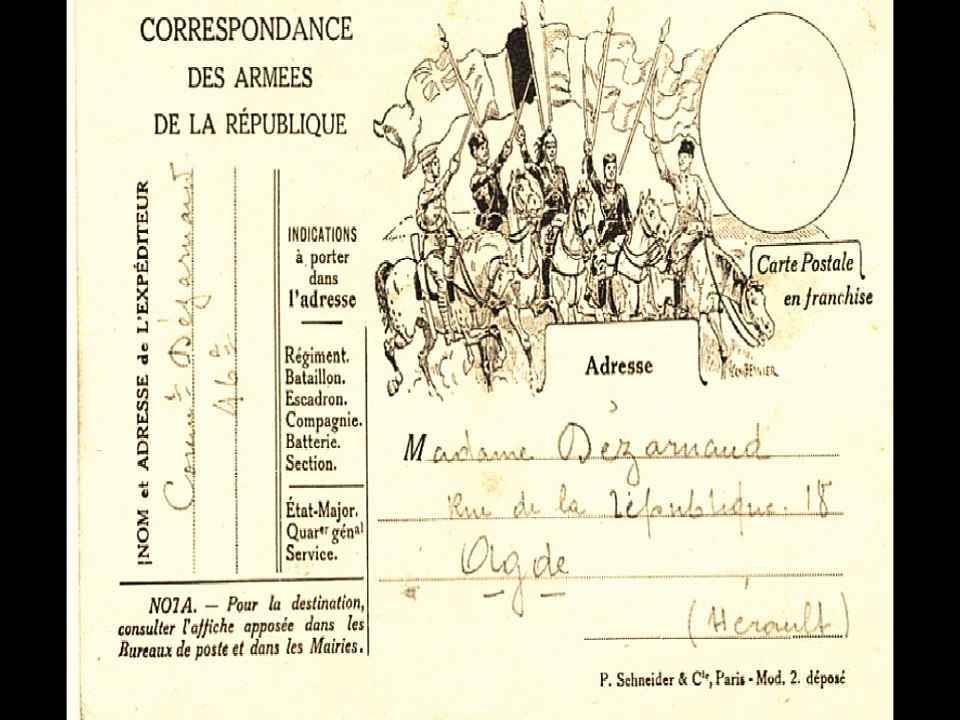 CORRESPONDANCE
DES ARMEES
DE LA RÉPUBLIQUE
NOM et ADRESSE de L'EXPÉDITEUR
Dézarnaud
46e
INDICATIONS
à porter
dans
l'adresse
Régiment.
Bataillon.
Escadron.
Compagnie.
Batterie.
Section.
État-Major.
Quarer génal
Service.
NOTA. — Pour la destination,
consulter l'affiche apposée dans les
Bureaux de poste et dans les Mairies.
Carte Postale
en franchise
Adresse
Madame Dézarnaud
Rue de la République. 18
Agde
(Hérault)
P. Schneider & Cie, Paris - Mod. 2. déposé